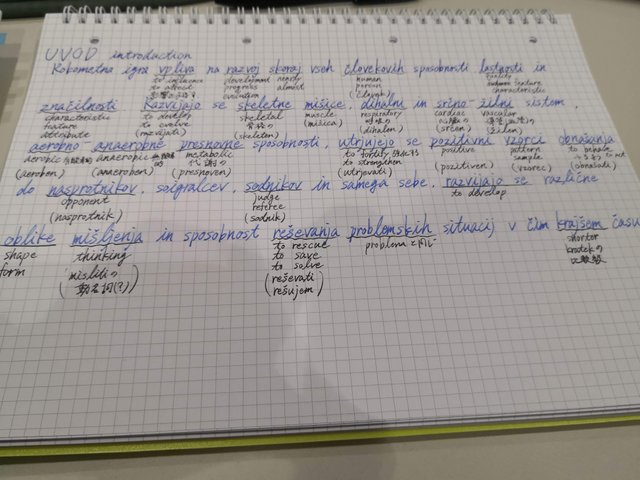 UVOD introduction
Rokometna igra vpliva na razvoj skoraj vseh človekovih sposobnosti lastnosti in
to influence development nearly human quality
to affect progress almost person
evolution (človek) characteristic
značilnosti Razvijajo se skeletne mišice, dihalni in srčno-žilni sistem,
characteristic to develop skeletal muscle respiratory cardiac vascular
feature to evolve
attribute (razvijati) (skeleten) (mišica) (dihalen) (srčen) (žilen)
aerobno anaerobne presnovne sposobnosti, utrjujejo se pozitivni vzorci obnašanja
aerobic anaerobic metabolic to fortify positive pattern to behave
to strengthen sample
(aeroben) (anaeroben) (presnoven) (utrjevati) (pozitiven) (vzorec) (obnašati)
do nasprotnikov, soigralcev, sodnikov in samega sebe, razvijajo se različne
opponent judge to develop
referee
(nasprotnik) (sodnik)
oblike mišljenja in sposobnost reševanja problemskih situacij v čim krajšem času
shape thinking to rescue problem shorter
form to save kratekの
mislitiの to solve 比較級
動名詞(?) (reševati
rešujem)